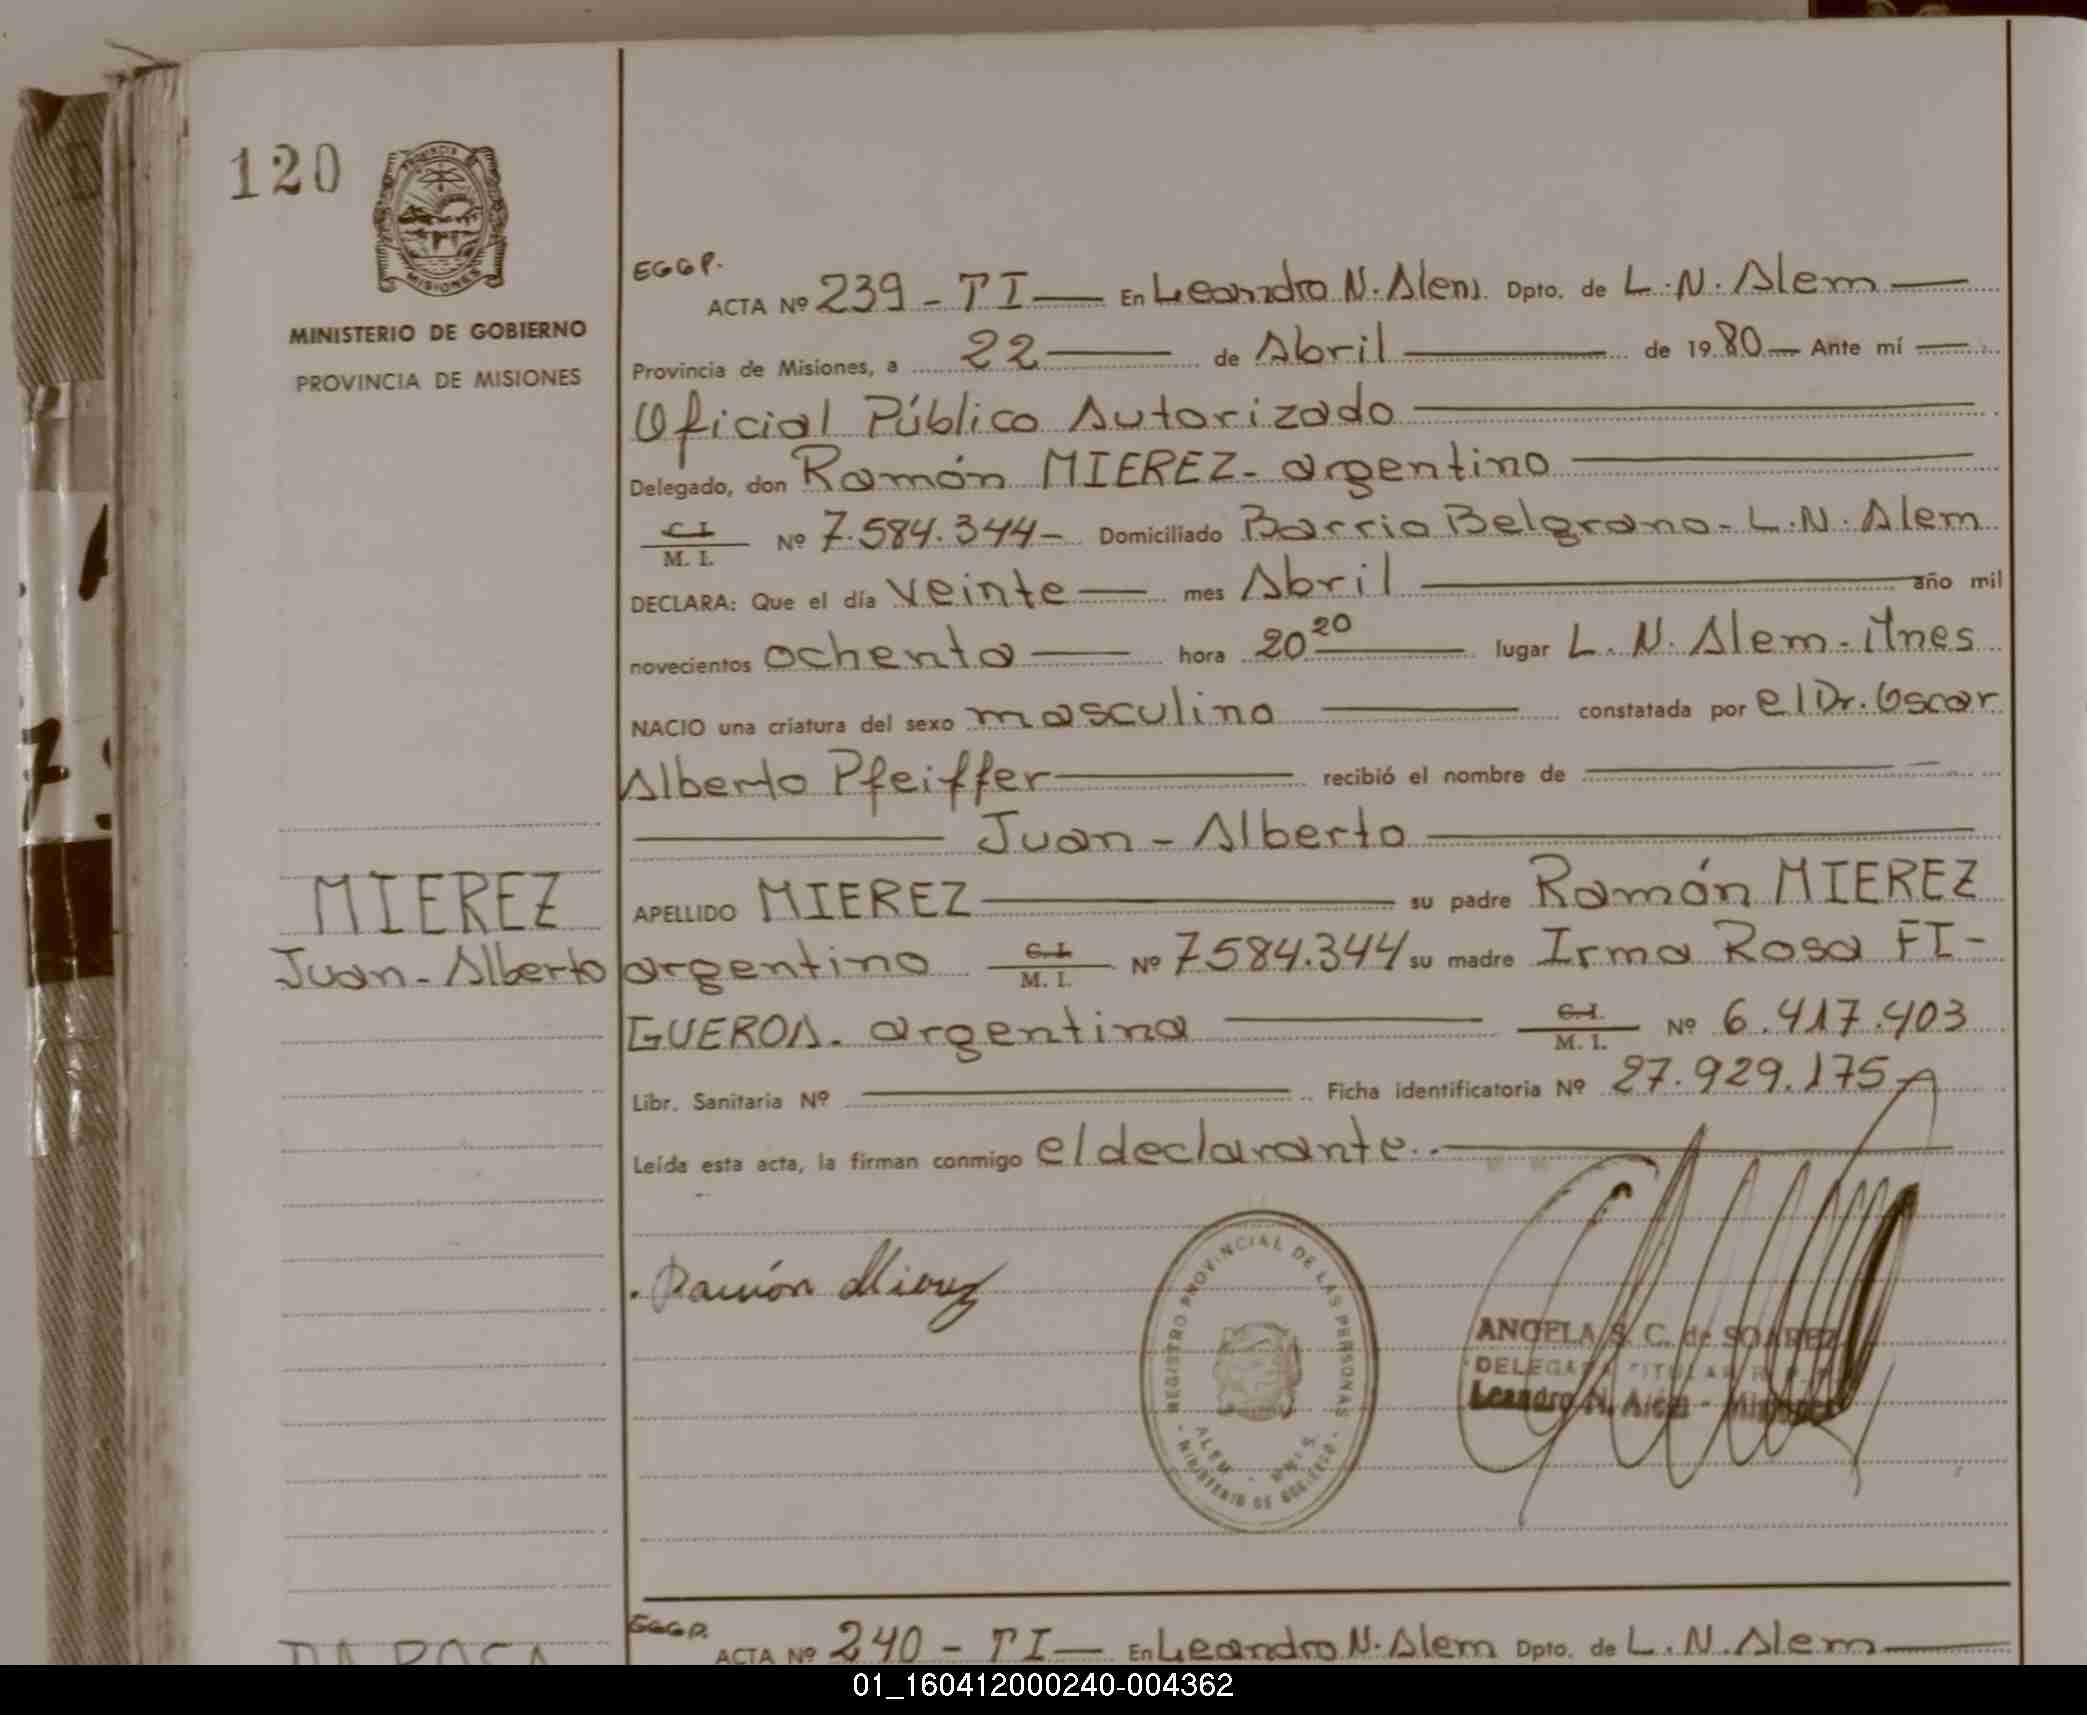 120
PROVINCIA
MISIONES
MINISTERIO DE GOBIERNO
PROVINCIA DE MISIONES
EGGP.
ACTA Nº 239 - TI — En Leandro N. Alem. Dpto. de L. N. Alem —
Provincia de Misiones, a 22 — de Abril — de 1980 — Ante mí —
Oficial Público Autorizado —
Delegado, don Ramón MIEREZ - argentino —
C I / M. I. Nº 7.584.344 - Domiciliado Barrio Belgrano - L. N. Alem
DECLARA: Que el día veinte — mes Abril — año mil
novecientos ochenta — hora 20 20 — lugar L. N. Alem - Mnes
NACIO una criatura del sexo masculino — constatada por el Dr. Oscar
Alberto Pfeiffer — recibió el nombre de —
— Juan - Alberto —
MIEREZ
APELLIDO MIEREZ — su padre Ramón MIEREZ
Juan - Alberto
argentino C.I. / M. I. Nº 7584.344 su madre Irma Rosa FI-
GUEROA. argentina — C.I. / M. I. Nº 6.417.403
Libr. Sanitaria Nº — Ficha identificatoria Nº 27.929.175
Leída esta acta, la firman conmigo el declarante.. —
Ramón Mierez
REGISTRO PROVINCIAL DE LAS PERSONAS
ALEM - MNES.
MINISTERIO DE GOBIERNO
ANGELA S. C. de SOAREZ
DELEGADA TITULAR R. P. P.
Leandro N. Alem - Misiones
DA ROSA
EGGP.
ACTA Nº 240 - TI — En Leandro N. Alem Dpto. de L. N. Alem —
01_160412000240-004362